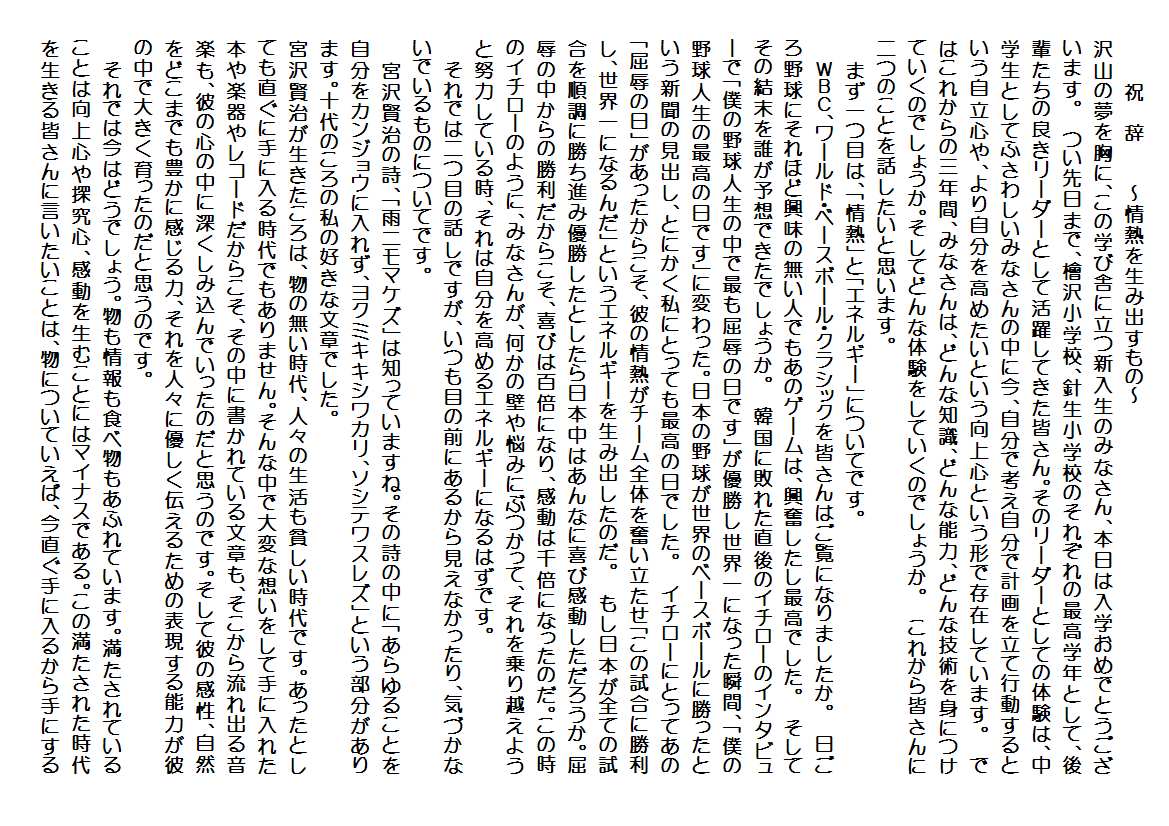 祝　辞　　～情熱を生み出すもの～
沢山の夢を胸に、この学び舎に立つ新入生のみなさん、本日は入学おめでとうござ
います。　つい先日まで、檜沢小学校、針生小学校のそれぞれの最高学年として、後
輩たちの良きリーダーとして活躍してきた皆さん。そのリーダーとしての体験は、中
学生としてふさわしいみなさんの中に今、自分で考え自分で計画を立て行動すると
いう自立心や、より自分を高めたいという向上心という形で存在しています。　で
はこれからの三年間、みなさんは、どんな知識、どんな能力、どんな技術を身につけ
ていくのでしょうか。そしてどんな体験をしていくのでしょうか。　これから皆さんに
二つのことを話したいと思います。
まず一つ目は、「情熱」と「エネルギー」についてです。
ＷＢＣ、ワールド・ベースボール・クラシックを皆さんはご覧になりましたか。　日ご
ろ野球にそれほど興味の無い人でもあのゲームは、興奮したし最高でした。　そして
その結末を誰が予想できたでしょうか。　韓国に敗れた直後のイチローのインタビュ
ーで「僕の野球人生の中で最も屈辱の日です」が優勝し世界一になった瞬間、「僕の
野球人生の最高の日です」に変わった。日本の野球が世界のベースボールに勝ったと
いう新聞の見出し、とにかく私にとっても最高の日でした。　イチローにとってあの
「屈辱の日」があったからこそ、彼の情熱がチーム全体を奮い立たせ「この試合に勝利
し、世界一になるんだ」というエネルギーを生み出したのだ。　もし日本が全ての試
合を順調に勝ち進み優勝したとしたら日本中はあんなに喜び感動しただろうか。屈
辱の中からの勝利だからこそ、喜びは百倍になり、感動は千倍になったのだ。この時
のイチローのように、みなさんが、何かの壁や悩みにぶつかって、それを乗り越えよう
と努力している時、それは自分を高めるエネルギーになるはずです。
それでは二つ目の話しですが、いつも目の前にあるから見えなかったり、気づかな
いでいるものについてです。
宮沢賢治の詩、「雨ニモマケズ」は知っていますね。その詩の中に「あらゆることを
自分をカンジョウに入れず、ヨクミキキシワカリ、ソシテワスレズ」という部分があり
ます。十代のころの私の好きな文章でした。
宮沢賢治が生きたころは、物の無い時代、人々の生活も貧しい時代です。あったとし
ても直ぐに手に入る時代でもありません。そんな中で大変な想いをして手に入れた
本や楽器やレコードだからこそ、その中に書かれている文章も、そこから流れ出る音
楽も、彼の心の中に深くしみ込んでいったのだと思うのです。そして彼の感性、自然
をどこまでも豊かに感じる力、それを人々に優しく伝えるための表現する能力が彼
の中で大きく育ったのだと思うのです。
それでは今はどうでしょう。物も情報も食べ物もあふれています。満たされている
ことは向上心や探究心、感動を生むことにはマイナスである。この満たされた時代
を生きる皆さんに言いたいことは、物についていえば、今直ぐ手に入るから手にする